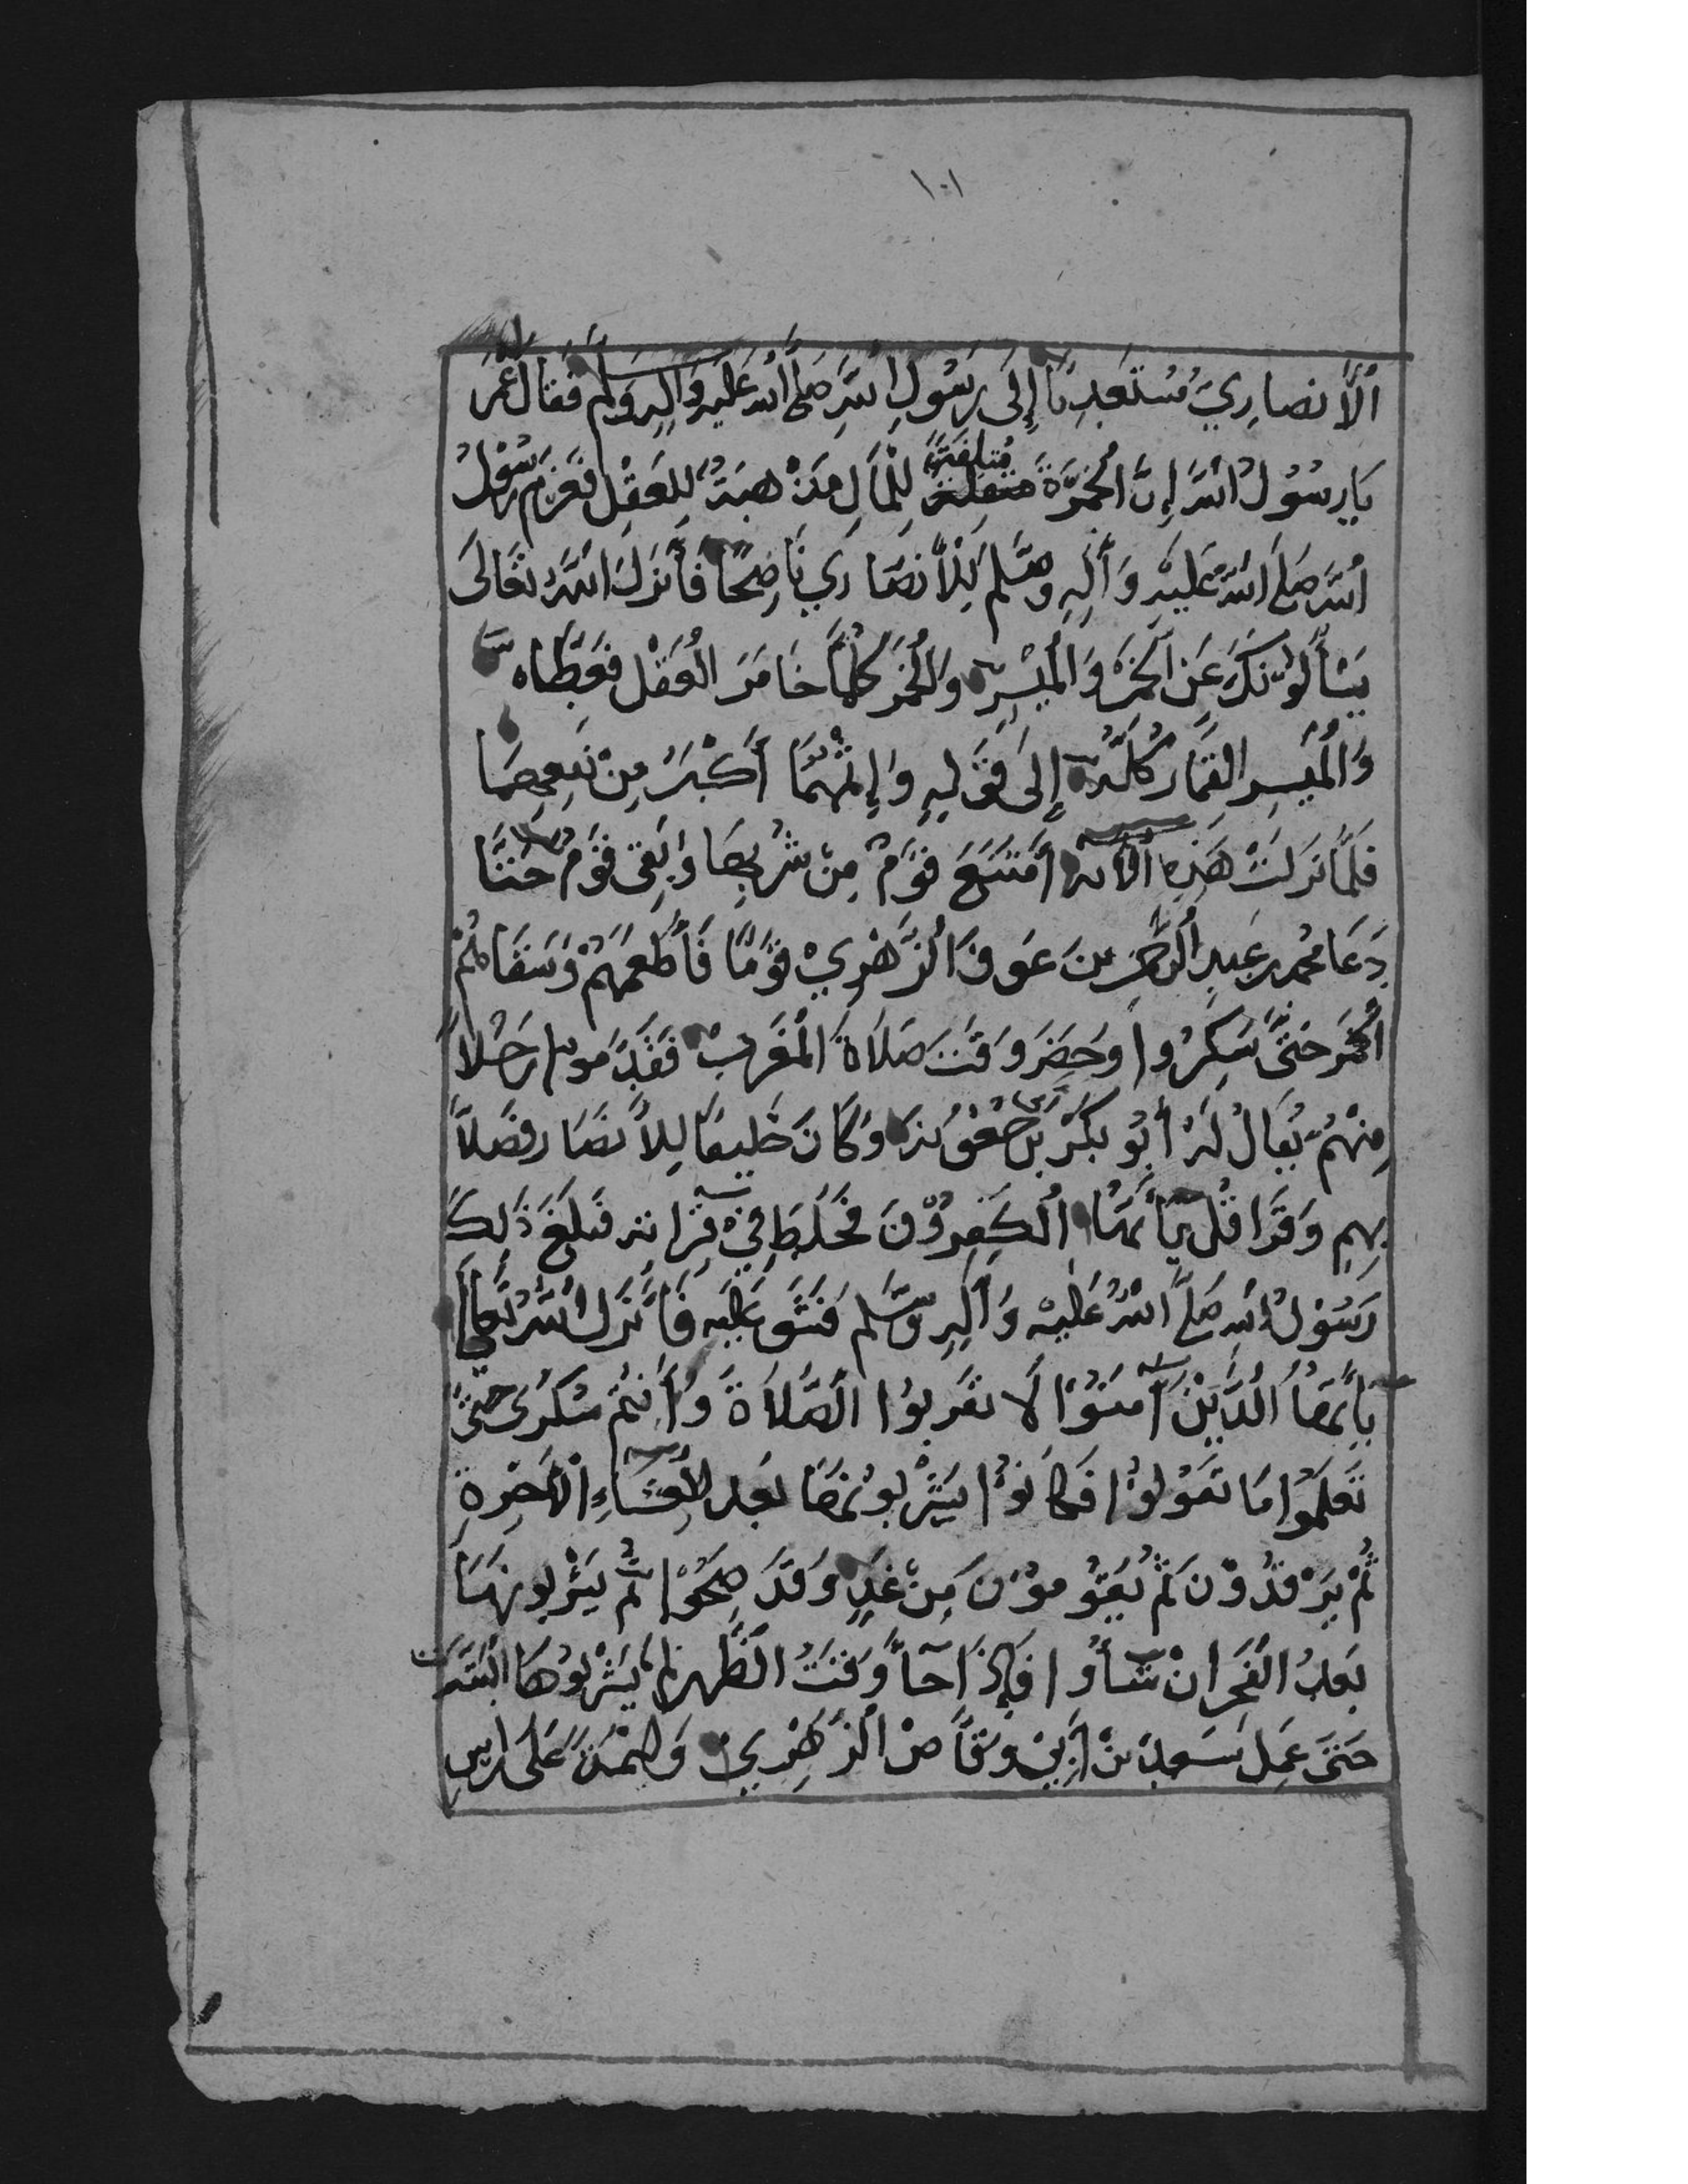 ١٠١
اْلأنصارِيّ مُسْتَعْدِيًا إِلَى رَسُولِ اللهِ صَلَّى اللهُ عَلَيْهِ وَآلِهِ وَسَلَّمَ فَقَالَ عُمَرَ
يَا رسُوُلُ اللهِ إِنَّ اْلخَمْرَةَ مُتلِفَةً لِلْمَالِ مَذْهَبَةُ لِلعَقْلِ فَغَرَمَ رَسُوْلُ
اللهِ صَلَّى اللهُ عَلَيْهِ وَأَلِهِ وسَلَّم لِلْأَنصَارِي نَاضِحًا فَأَنْزَلَ اللهُ تعَالَى
يَسْأَلُوْنَكَ عَنِ اْلخَمْرِ وَاْلمَيْسِرِ وَاْلخَمْر كُلّمَا خَامَرَ الْعَقْل فَغَطَّاه
وَاْلمَيْسِرِ القِمَار كُلّهُ إِلَى قَوْلِهِ وَإِثْمُهُمَا أَكْبَرُ مِنْ نَفعِهِمَا
فَلَمَّا نَزَلَتْ هَذِهِ الْآيَة أمْتَنَعَ قَوْمٌ مِنْ شُرْبِهَا وَبَقِيَ قَوْمٌ حَتَّا
دَعَا مُحمد بن عَبدِ الرَّحْمٰنِ بنَ عَوفَ الزَّهْرِيْ قَوْمًا فَأَطْعَمَهُمْ وَسَقَاهُمْ
الْخَمْرَ حَتَّى سَكِرُوا وَحَضَرَ وَقْتَ صَلَاةَ الْمَغْرِبْ فَقَدَّمَوا رَجُلاً
مِنْهُمْ يُقَالُ لَهُ أَبُو بَكْرَ بن وَكَانَ حَلِيفًا لِلأَنصَار فَصَلاَّ
بِهِمِ وَقَرَا قُلْ يَأَيُّهَا اْلكَفِرُوْنَ فَخَلَطَ فِيْ قِرَاتَهِ فَبَلَغَ ذَلِكَ
رَسُوْلُ اللهِ صَلَّى اللهُ عَلَيْهِ وَأَلِهِ وَسَّلم فَشَقَّ عَلَيْهِ فَأَنْزَلَ اللهُ تَعَالَى
يَاأَيُّهَا الَّذَيْنَ آمَنُوْا لَا تَقْرَبُوا الصَّلَاةَ وَأَنتُمْ سُكَرَى حَتَّى
تَعْلَمُوا مَا تَقُوْلُوْا فَكَانُوْا يَشْرَبُوْنَهَا بَعْد العِشَاءِ الْأَخِرةِ
ثُمْ يَرْقُدُوْنَ ثُمْ يَقُوْمُوْنَ مِنْ غَدٍ وَقَدْ صَحَوْا ثُم يَشْرَبُونَهَا
بَعْدُ الفَجْرِ انْ شَاؤُا فَإِذَا جَآأَ وَقْتُ الظُّهر لَمْ يَشْرَبُوهَا الْبَتَّه
حَتَّى عَمِلَ سَعدُ بْنْ أَبِيْ وَقَّاصْ الْزُهْرِيْ وَلِيْمَةً عَلَى رَاسِ